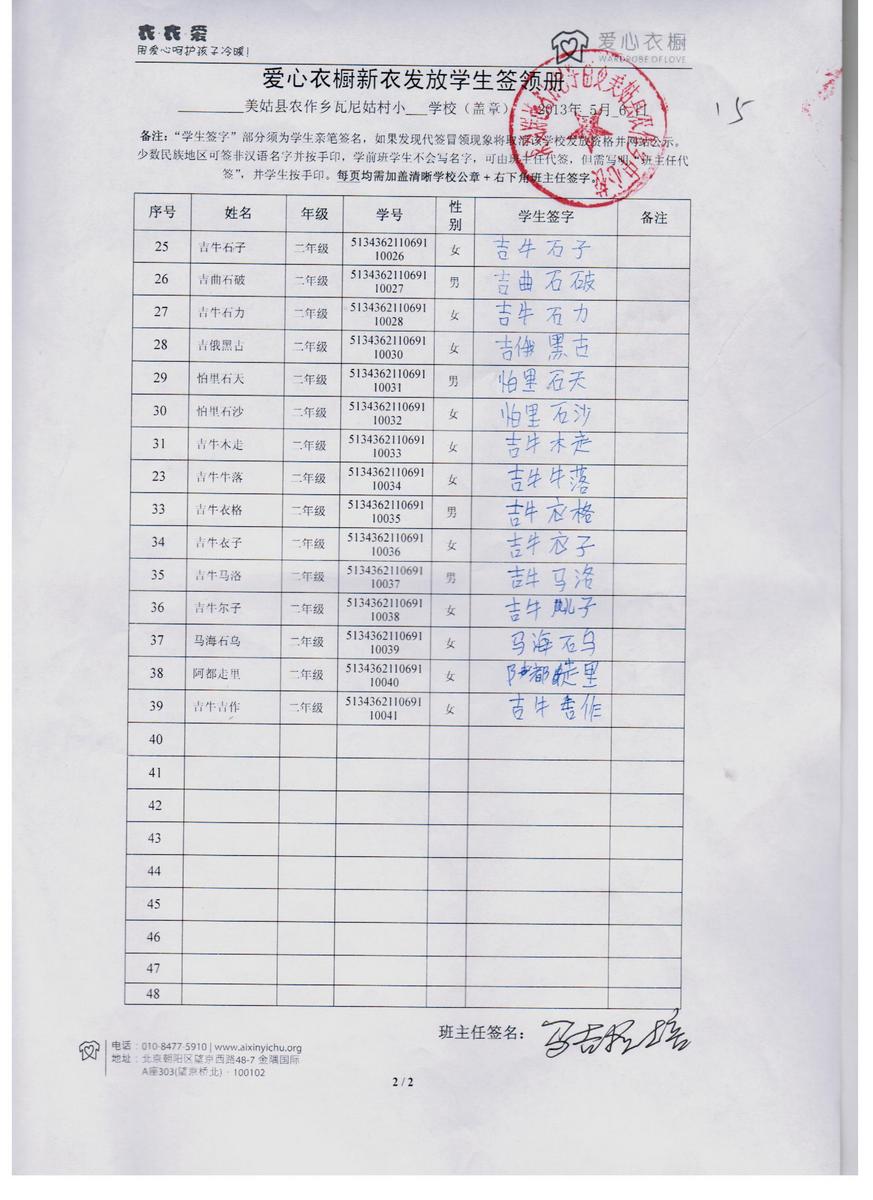 衣·衣·爱
用爱心呵护孩子冷暖！
爱心衣橱
WARDROBE OF LOVE
爱心衣橱新衣发放学生签领册
美姑县农作乡瓦尼姑村小 学校（盖章） 2013年 5月 6日
15
备注：“学生签字”部分须为学生亲笔签名，如果发现代签冒领现象将取消该学校发放资格并网站公示。
少数民族地区可签非汉语名字并按手印，学前班学生不会写名字，可由班主任代签，但需写明“班主任代
签”，并学生按手印。每页均需加盖清晰学校公章 + 右下角班主任签字。
序号 姓名 年级 学号 性别 学生签字 备注
25 吉牛石子 二年级 5134362110691 10026 女 吉牛石子
26 吉曲石破 二年级 5134362110691 10027 男 吉曲石破
27 吉牛石力 二年级 5134362110691 10028 女 吉牛石力
28 吉俄黑古 二年级 5134362110691 10030 女 吉俄黑古
29 怕里石天 二年级 5134362110691 10031 男 怕里石天
30 怕里石沙 二年级 5134362110691 10032 女 怕里石沙
31 吉牛木走 二年级 5134362110691 10033 女 吉牛木走
23 吉牛牛落 二年级 5134362110691 10034 女 吉牛牛落
33 吉牛衣格 二年级 5134362110691 10035 男 吉牛衣格
34 吉牛衣子 二年级 5134362110691 10036 女 吉牛衣子
35 吉牛马洛 二年级 5134362110691 10037 男 吉牛马洛
36 吉牛尔子 二年级 5134362110691 10038 女 吉牛 子
37 马海石乌 二年级 5134362110691 10039 女 马海石乌
38 阿都走里 二年级 5134362110691 10040 女 阿都走里
39 吉牛吉作 二年级 5134362110691 10041 女 吉牛吉作
40
41
42
43
44
45
46
47
48
班主任签名：
电话：010-8477-5910 | www.aixinyichu.org
地址：北京朝阳区望京西路48-7 金隅国际
A座303(望京桥北)·100102
2 / 2